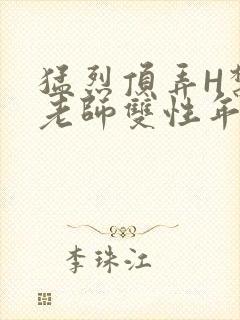 猛烈頂弄H
老師雙性年
李珠江